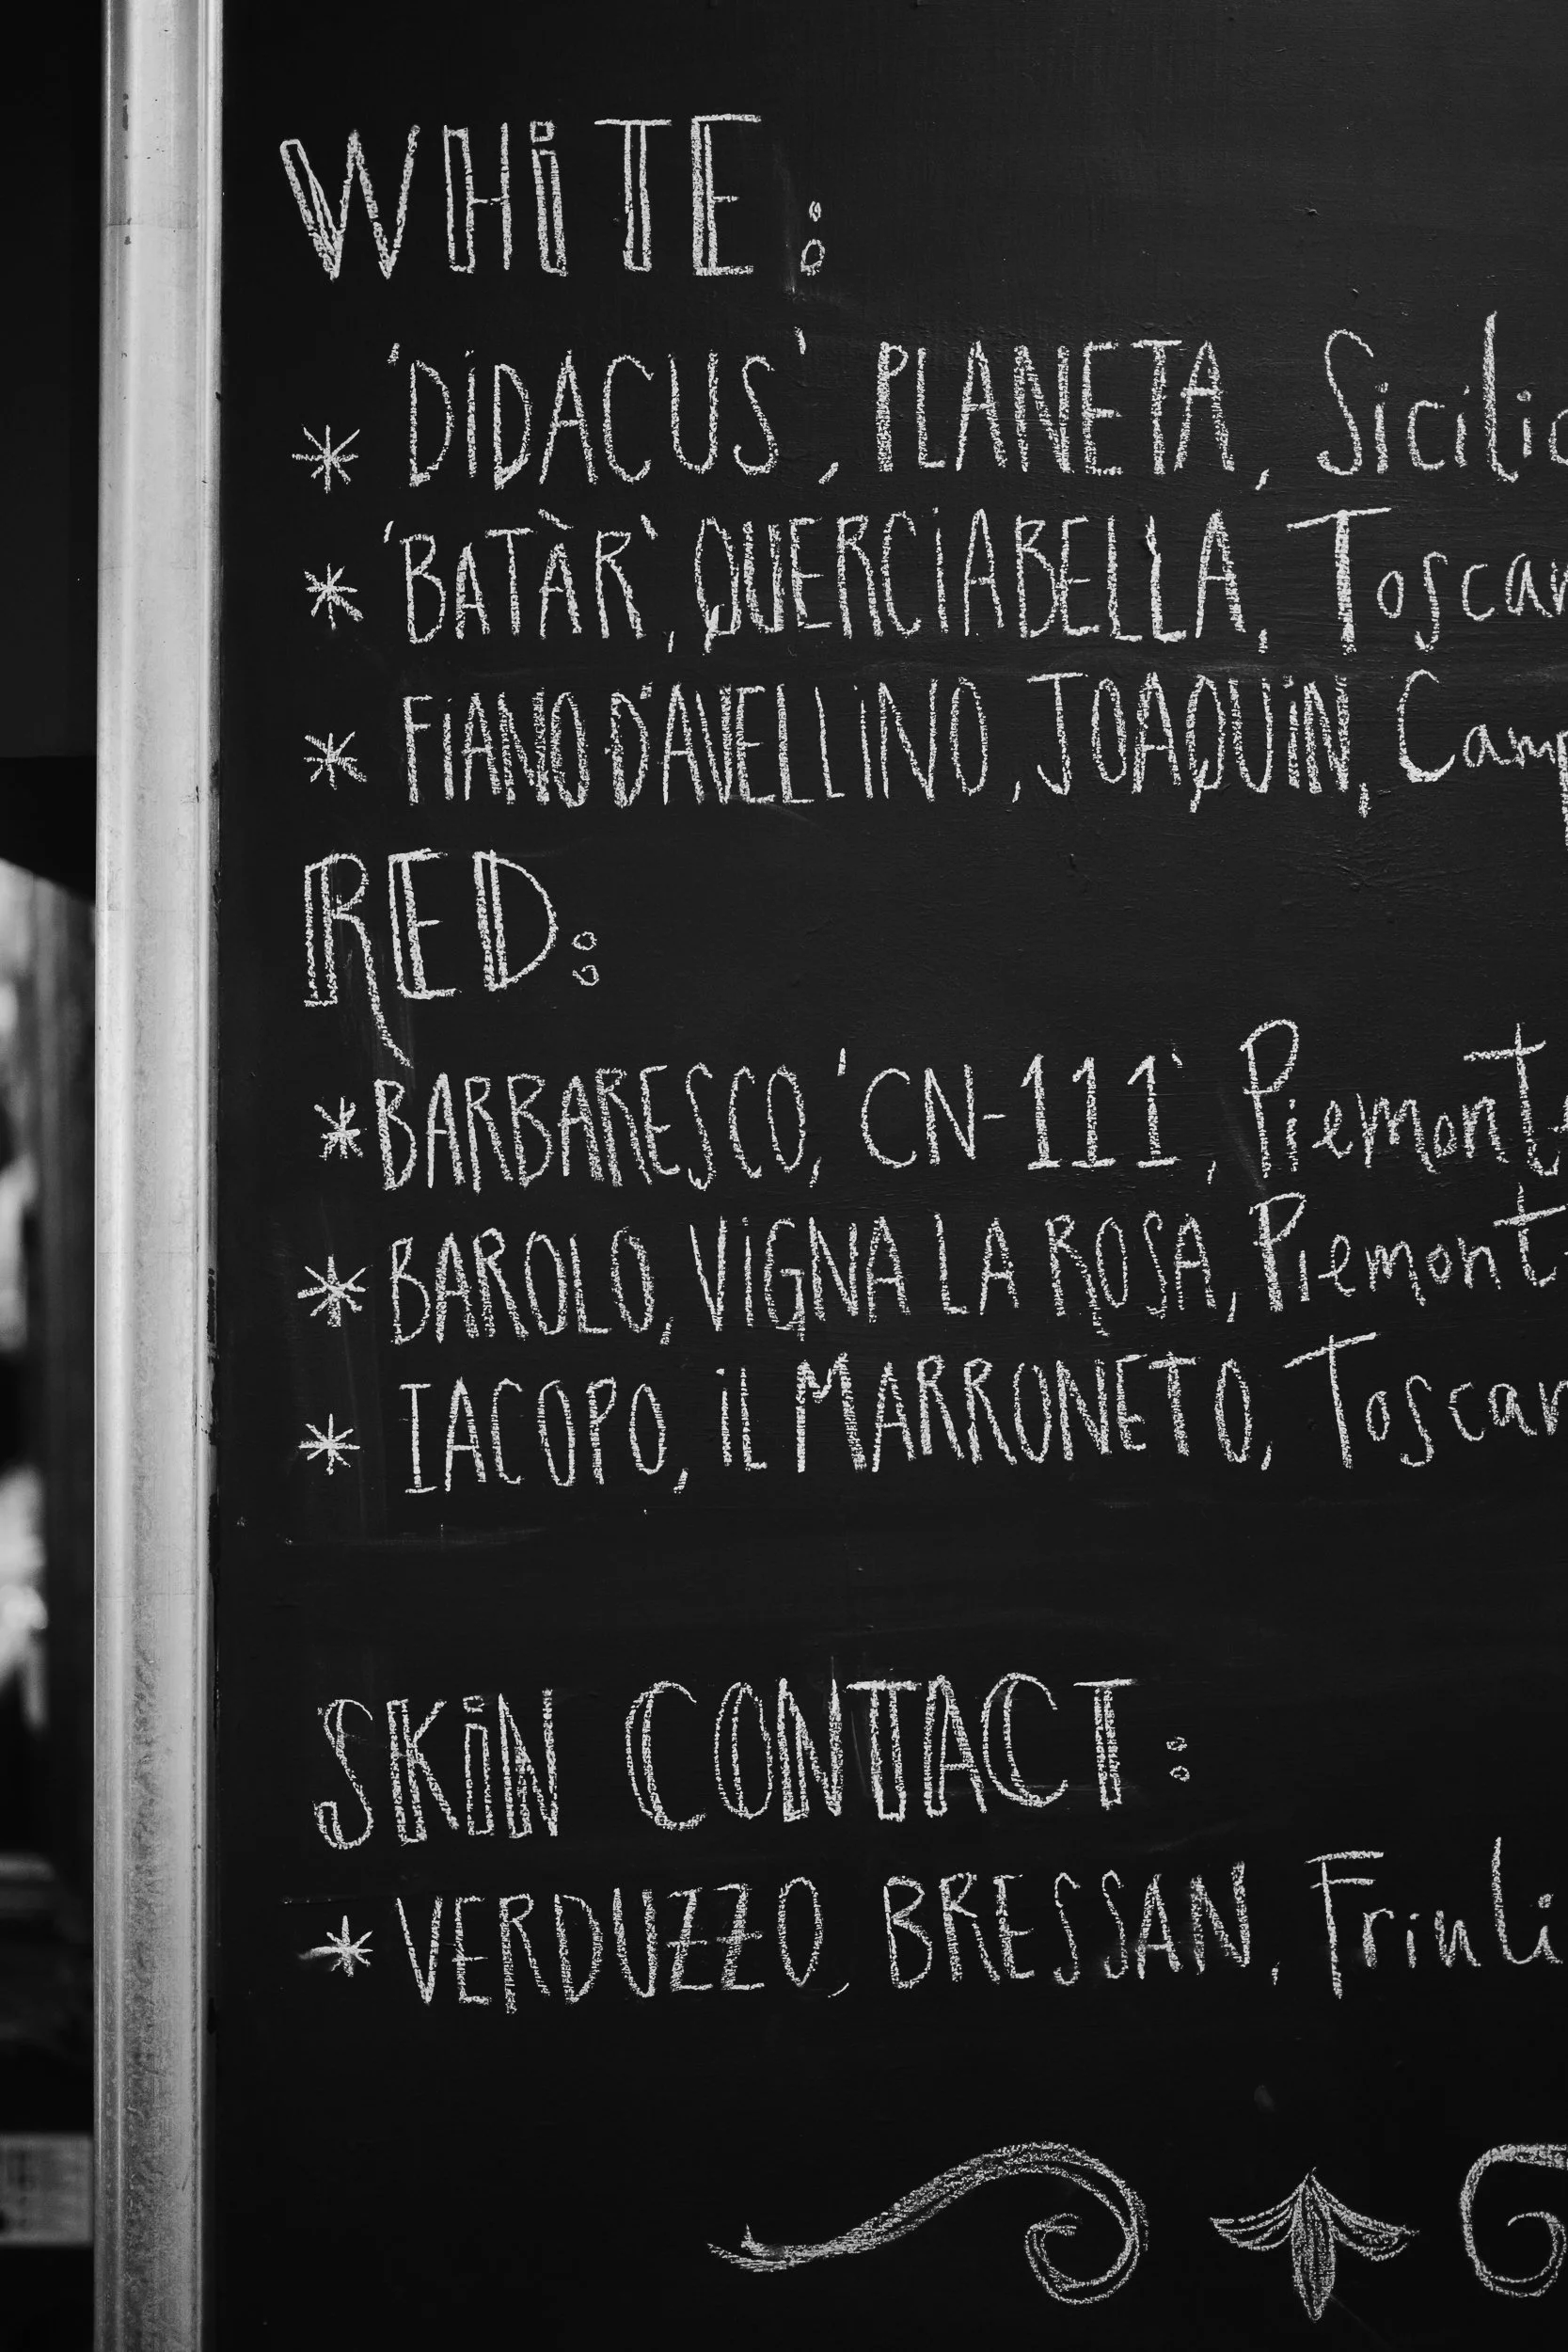 WHiTE:
* 'DiDACUS', PLANETA, Sicilia
* 'BATÀR', QUERCiABELLA, Toscan
* FiANO D'AVELLiNO, JOAQUiN, Camp
RED:
* BARBARESCO, 'CN-111', Piemonte
* BAROLO, ViGNA LA ROSA, Piemont
* IACOPO, iL MARRONETO, Toscan
SKiN CONTACT:
* VERDUZZO, BRESSAN, Friuli